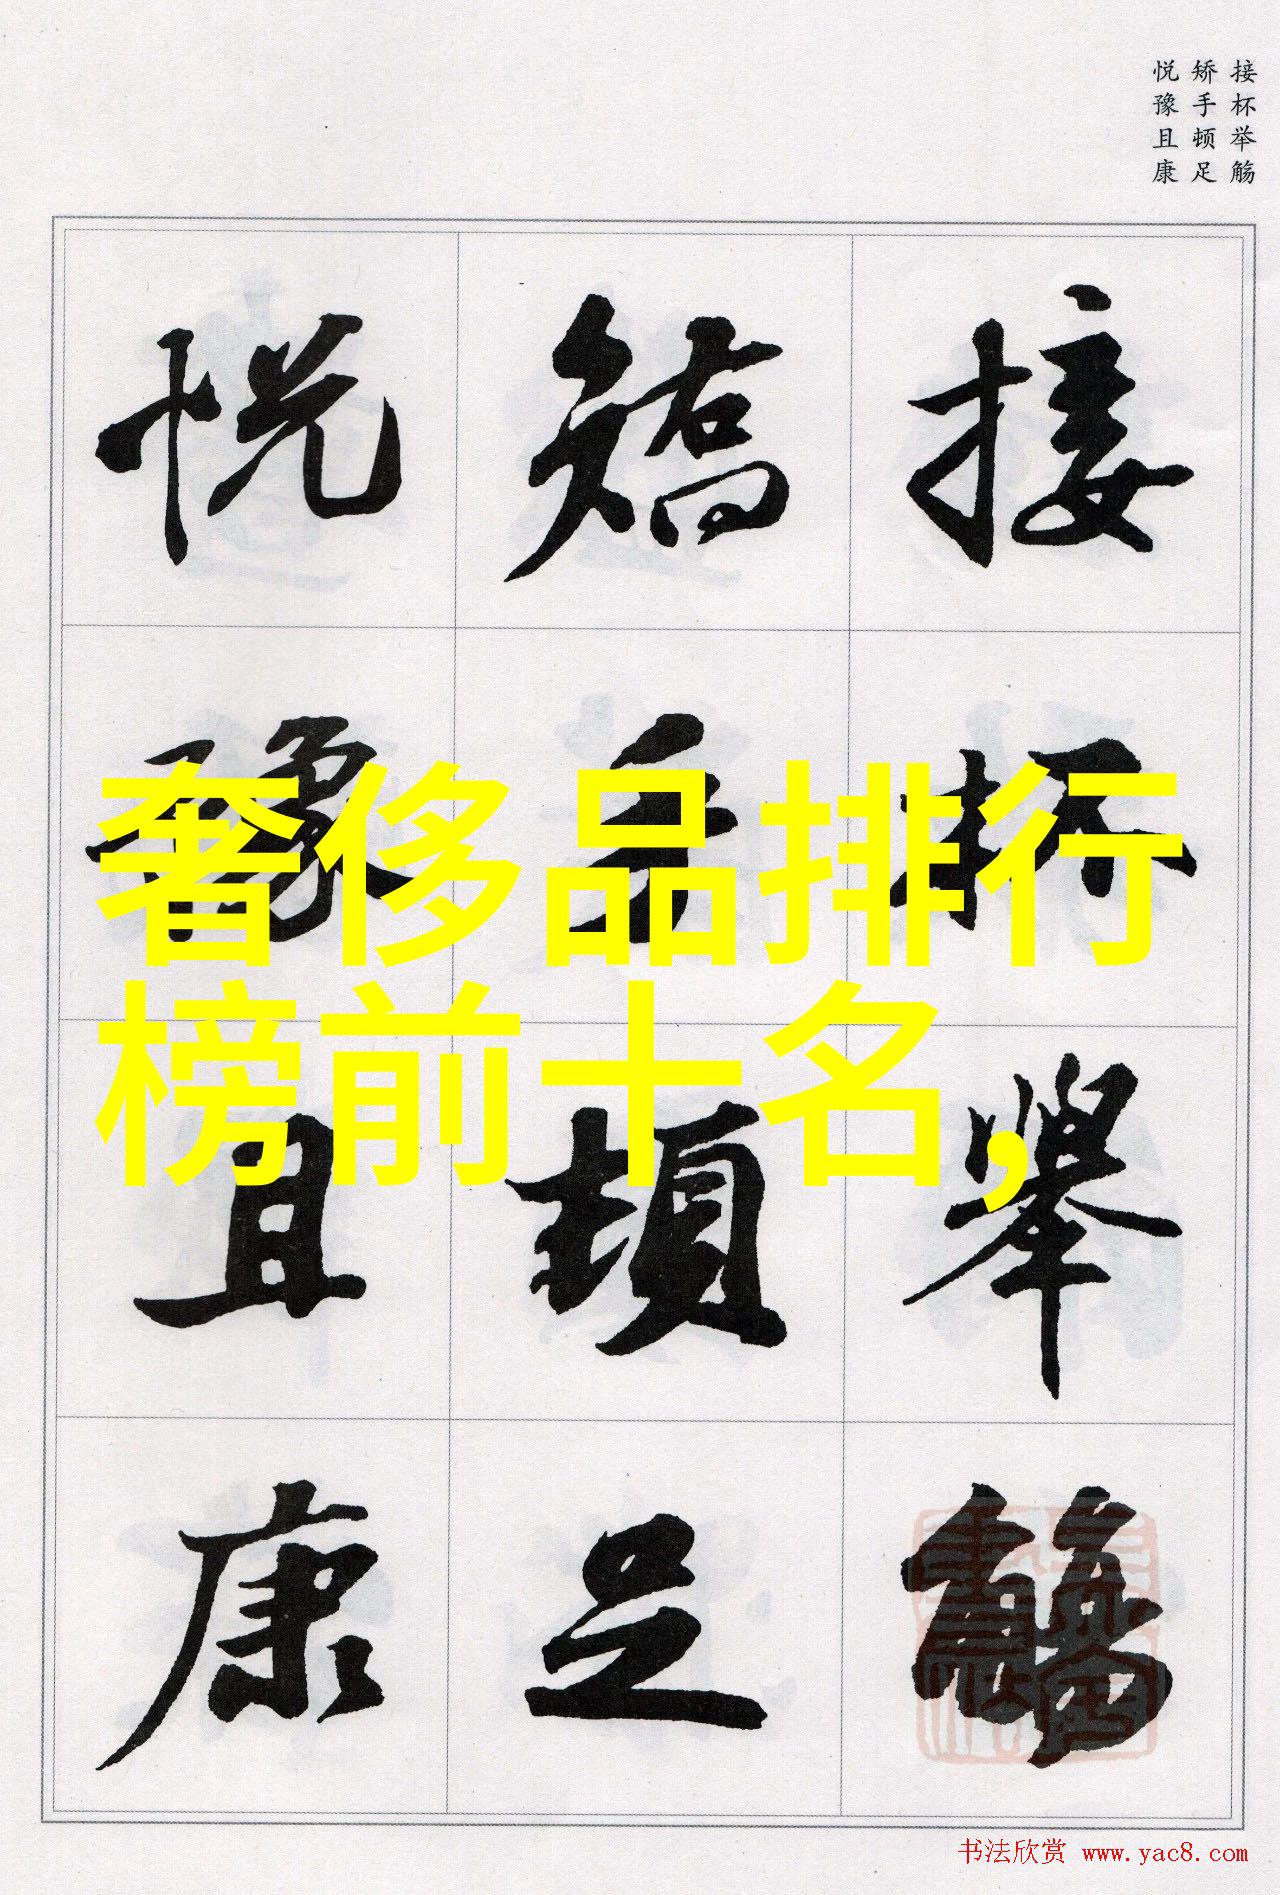 接杯举觞
矫手顿足
悦豫且康
接杯舉觴
矯手頓足
悦豫且康
奢侈品排行
榜前十名,
书法欣赏 www.yac8.com